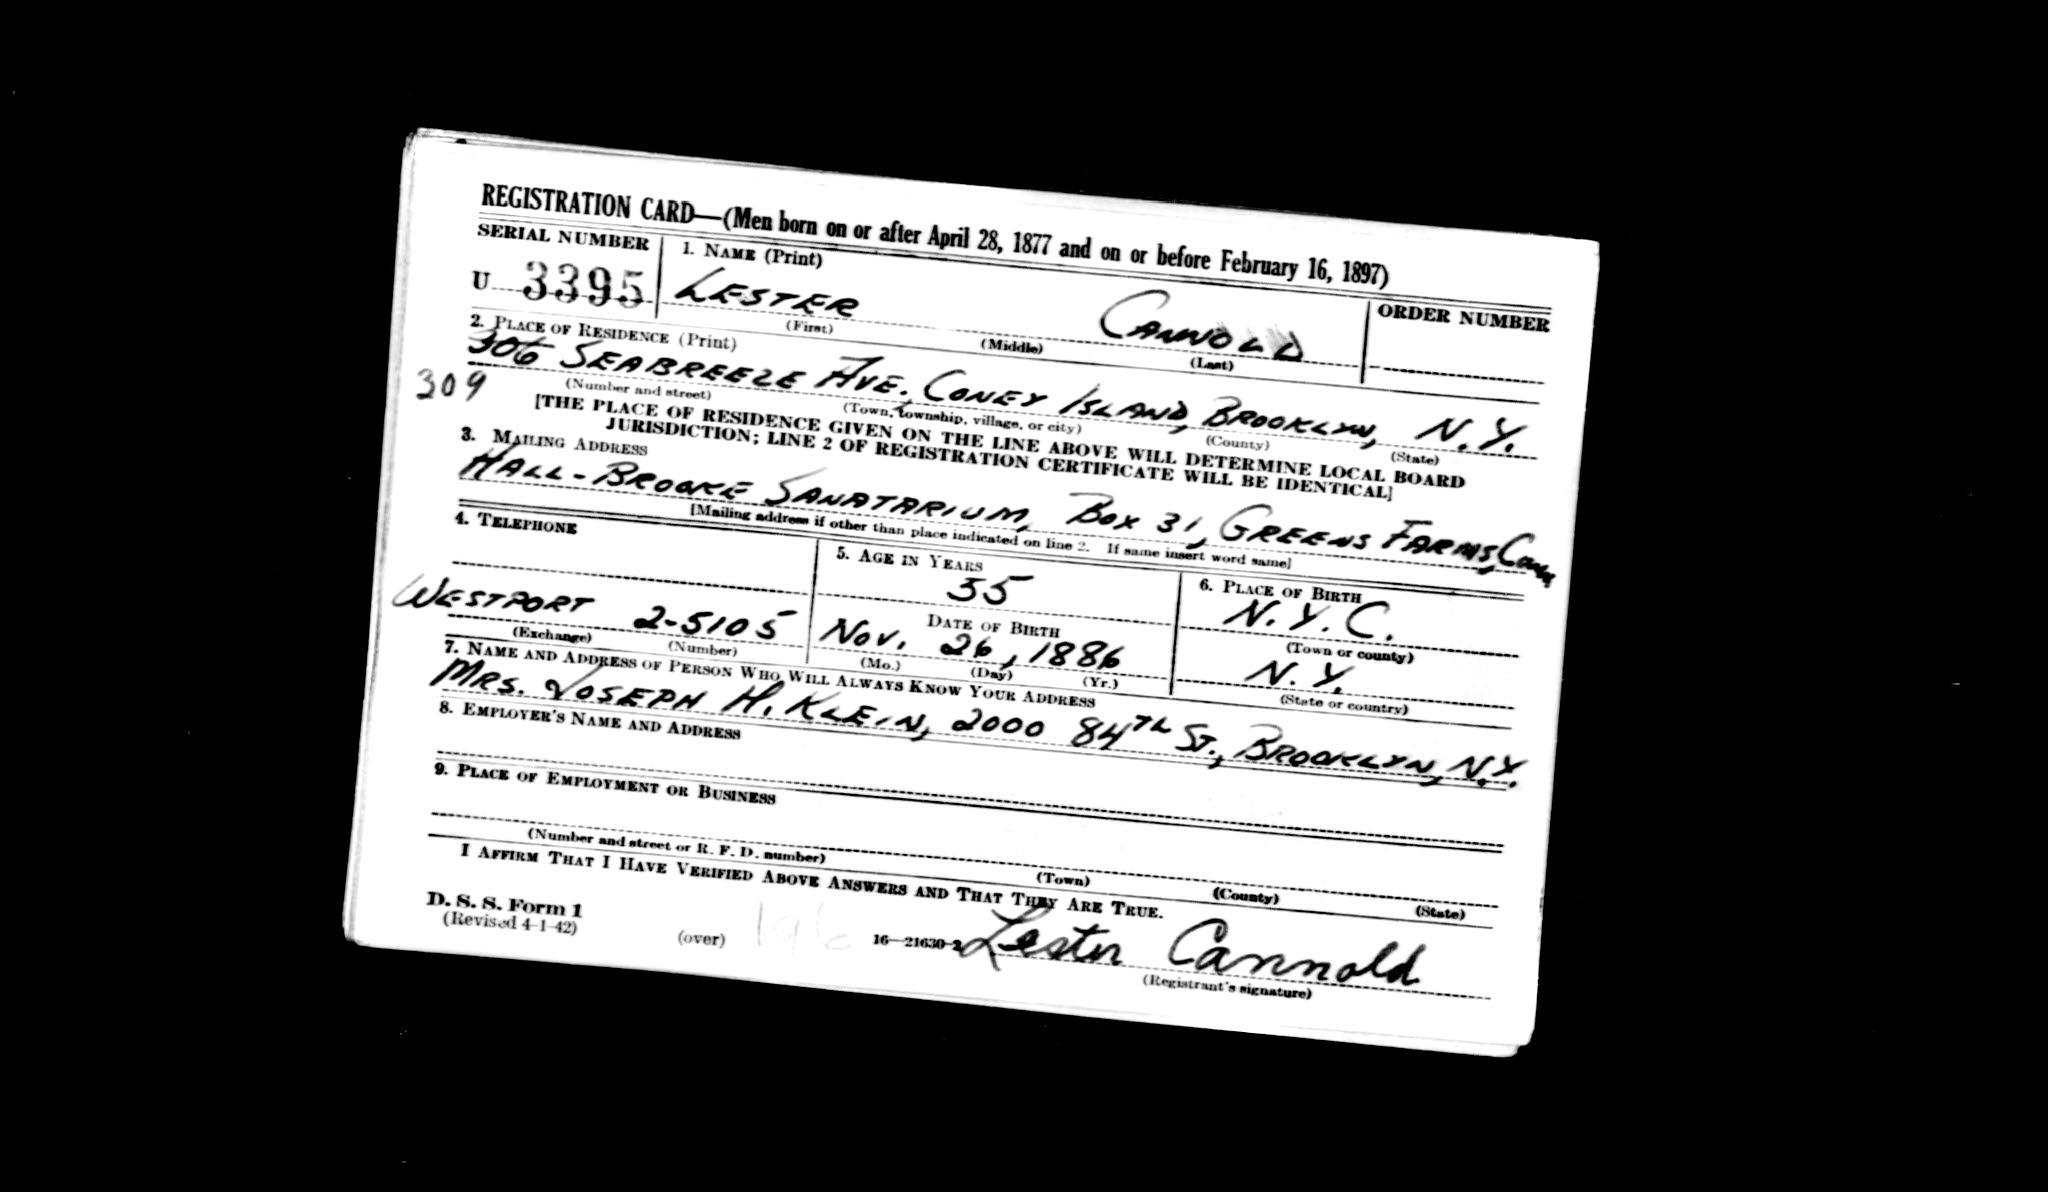 REGISTRATION CARD—(Men born on or after April 28, 1877 and on or before February 16, 1897)
SERIAL NUMBER
U 3395
1. NAME (Print)
LESTER CANNOLD
(First) (Middle) (Last)
ORDER NUMBER
2. PLACE OF RESIDENCE (Print)
306 SEABREEZE AVE., CONEY ISLAND, BROOKLYN, N.Y.
(Number and street) (Town, township, village, or city) (County) (State)
309
[THE PLACE OF RESIDENCE GIVEN ON THE LINE ABOVE WILL DETERMINE LOCAL BOARD
JURISDICTION; LINE 2 OF REGISTRATION CERTIFICATE WILL BE IDENTICAL]
3. MAILING ADDRESS
HALL-BROOKE SANATARIUM, BOX 31, GREENS FARMS, Conn
[Mailing address if other than place indicated on line 2. If same insert word same]
4. TELEPHONE
WESTPORT 2-5105
(Exchange) (Number)
5. AGE IN YEARS
55
DATE OF BIRTH
NOV. 26, 1886
(Mo.) (Day) (Yr.)
6. PLACE OF BIRTH
N.Y.C.
(Town or county)
N.Y.
(State or country)
7. NAME AND ADDRESS OF PERSON WHO WILL ALWAYS KNOW YOUR ADDRESS
MRS. JOSEPH H. KLEIN, 2000 84TH ST., BROOKLYN, N.Y.
8. EMPLOYER'S NAME AND ADDRESS
9. PLACE OF EMPLOYMENT OR BUSINESS
(Number and street or R. F. D. number) (Town) (County) (State)
I AFFIRM THAT I HAVE VERIFIED ABOVE ANSWERS AND THAT THEY ARE TRUE.
D. S. S. Form 1
(Revised 4-1-42)
(over)
16—21630-2
Lester Cannold
(Registrant's signature)